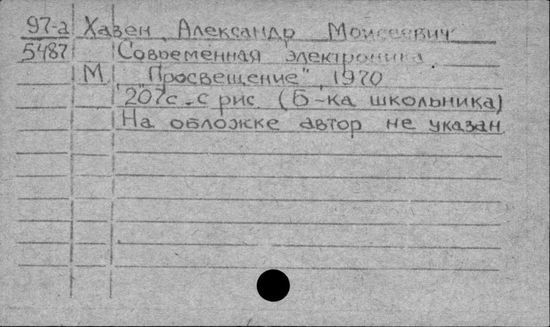 97-а Хазен, Александр Моисеевич
5487 Современная электроника.
М., "Просвещение", 1970
207с. с рис. (Б-ка школьника)
На обложке автор не указан